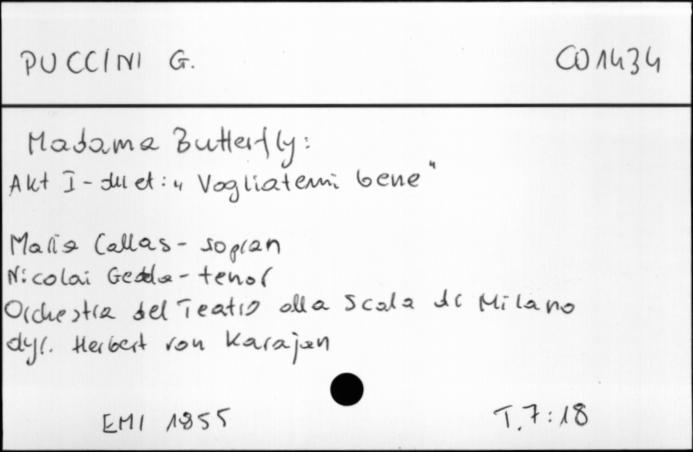 PUCCINI G. CD1434
Madama Butterfly:
Akt I - duet: „Vogliatemi bene"
Maria Callas - sopran
Nicolai Gedda - tenor
Orchestra del Teatro alla Scala di Milano
dyr. Herbert von Karajan
EMI 1955 T.7:18